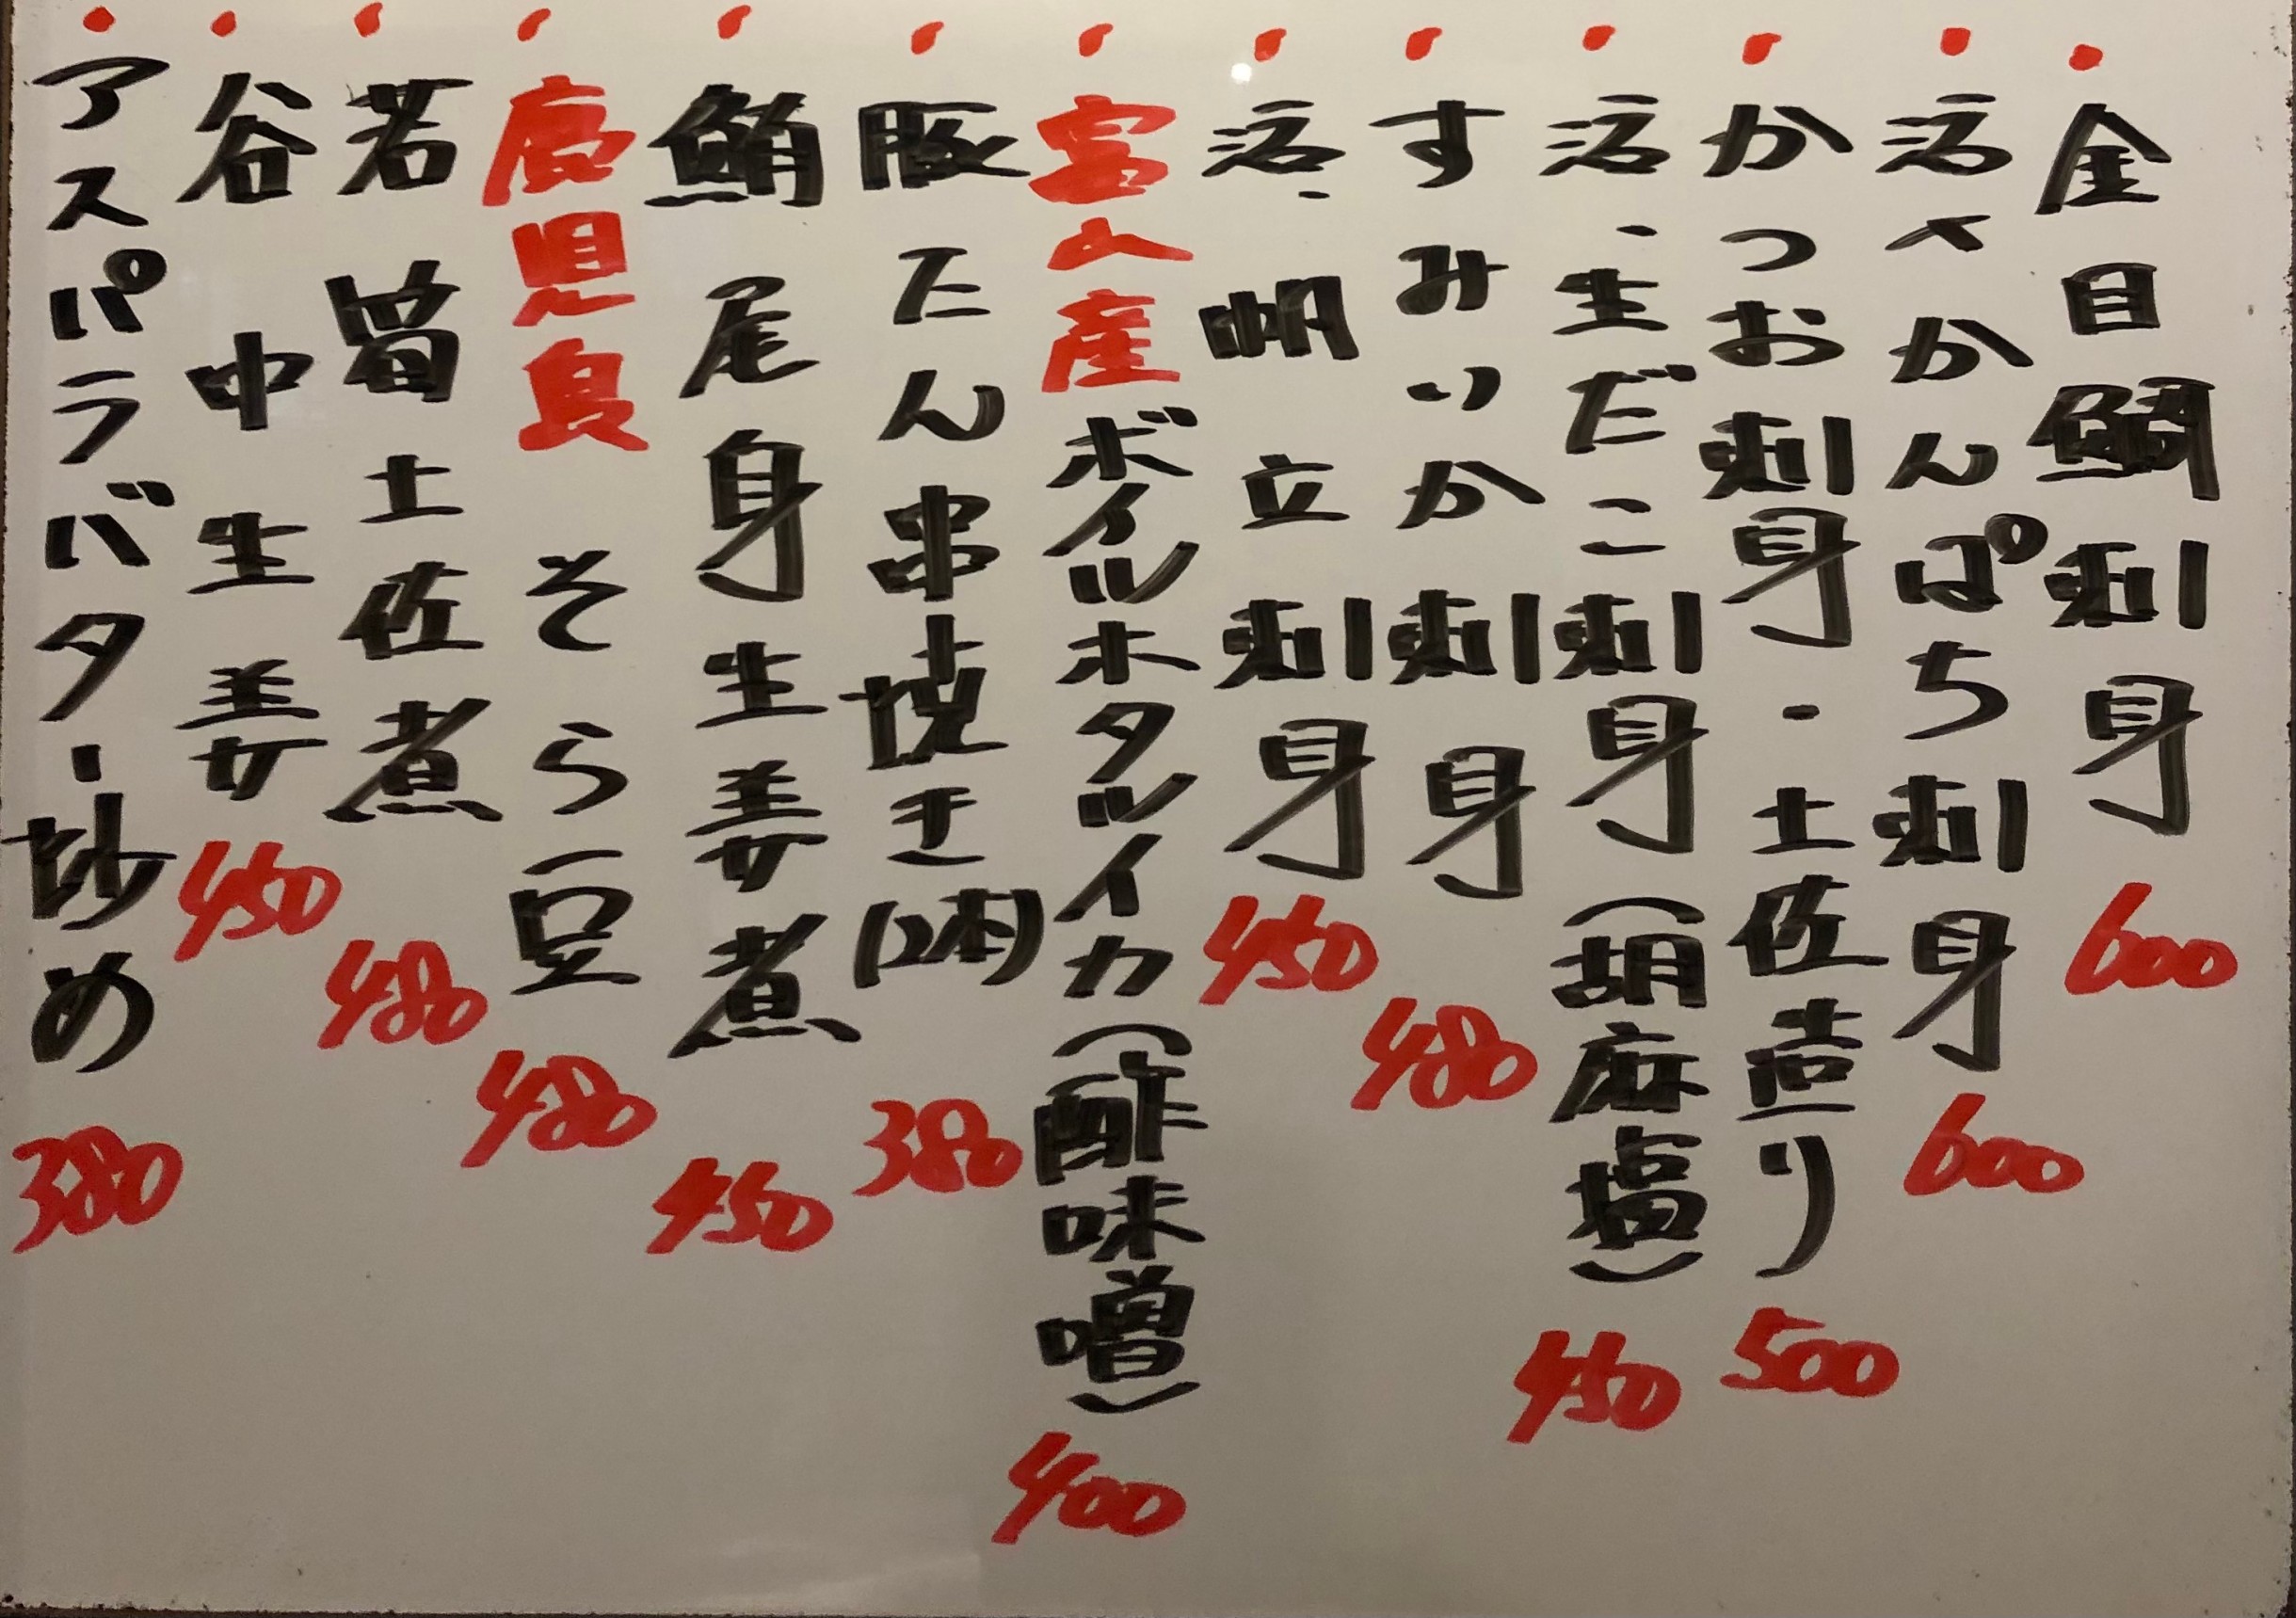 金目鯛刺身 600
活〆かんぱち刺身 600
かつお刺身・土佐造り 500
活・生だこ刺身(胡麻塩) 450
すみいか刺身 480
活・帆立刺身 450
富山産ボイルホタルイカ(酢味噌) 400
豚たん串焼き(2本) 380
鮪尾身生姜煮 450
鹿児島そら豆 480
若筍土佐煮 480
谷中生姜 450
アスパラバター炒め 380